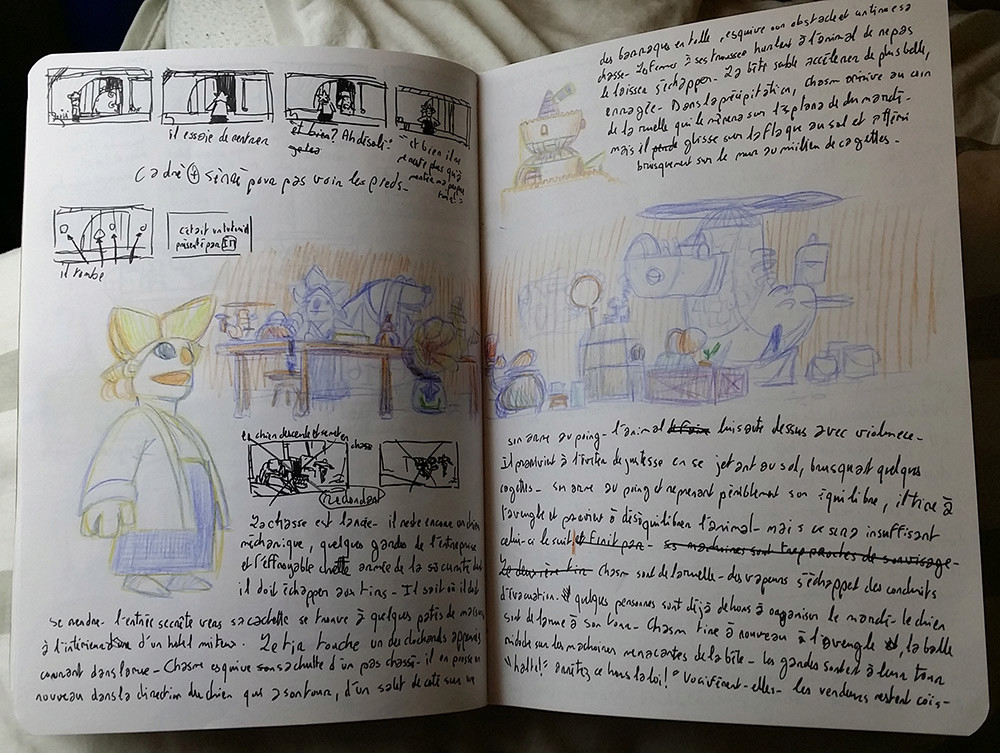 il essaie de rentrer
et bien? Ah désolé!
et bien il ne
reste plus qu'à
Cadré ④ serré pour pas voir les pieds-
c'était un tutoriel
présenté par
il tombe
un chien descend et se met en chasse
Redondant
La chasse est lancée- il reste encore un chien
méchanique, quelques gardes de l'entreprise
et l'effroyable armée de la sécurité dont
il doit échapper aux tirs- Il sait où il doit
se rendre- l'entrée secrète vers sa cachette se trouve à quelques patés de maisons
à l'intérieur d'un hotel miteux. Le tir touche un des clochards apeurés
courant dans la rue- Chasm esquive sans sa chute d'un pas chassé- il en pousse un
nouveau dans la direction du chien qui a son tour, d'un saut de coté sur un
des barraques en tolle, esquive son obstacle et continue sa
chasse- Les femmes à ses trousses hurlent à l'animal de ne pas
le laisser s'échapper- La bête sable accélérer de plus belle,
enragée- Dans la précipitation, Chasm arrive au coin
de la ruelle qui le mènera sur l'esplanade du marché-
mais il glisse sur la flaque au sol et atterri
brusquement sur le mur au milieu de cagettes-
son arme au poing- l'animal lui saute dessus avec violence-
Il parvient à l'éviter de justesse en se jetant au sol, brusquant quelques
cagettes- son arme au poing et reprenant péniblement son équilibre, il tire à
l'aveugle et parvient à déséquilibrer l'animal- mais ce sera insuffisant
celui-ci le suit et finit par- ses machoires sont trop proches de son visage-
Le deuxième tir Chasm sort de la ruelle- des vapeurs s'échappent des conduits
d'évacuation. quelques personnes sont déjà dehors à organiser le marché- le chien
sort de l'arme à son tour- Chasm tire à nouveau à l'aveugle, la balle
ricoche sur les machoires menacantes de la bête- Les gardes sortent à leur tour
"halte!" arrêtez ce hors la loi!" Vocifèrent-elles- les vendeurs restent cois-